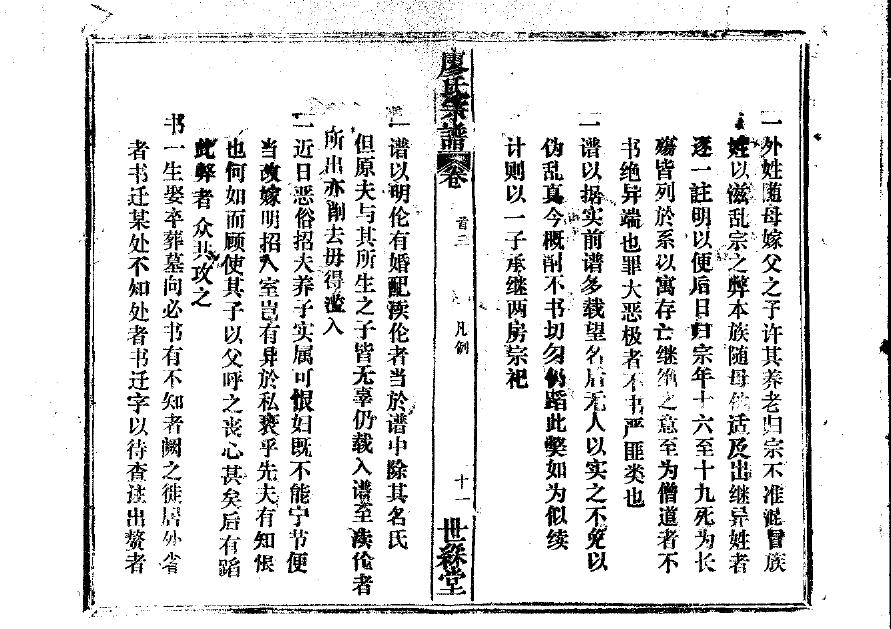 一外姓随母嫁父之子许其养老归宗不准混冒族
姓以滋乱宗之弊本族随母他适及出继异姓者
逐一註明以便后日归宗年十六至十九死为长
殇皆列於系以寓存亡继绝之意至为僧道者不
书绝异端也罪大恶极者不书严匪类也
一谱以据实前谱多载望名后无人以实之不免以
伪乱真今概削不书切勿仍蹈此弊如为似续
计则以一子承继两房宗祀
廖氏宗譜 卷 首二 凡例 十一 世釐堂
一谱以明伦有婚配渎伦者当於谱中除其名氏
但原夫与其所生之子皆无辜仍载入谱至渎伦者
所出亦削去毋得滥入
一近日恶俗招夫养子实属可恨妇既不能守节便
当改嫁明招入室岂有异於私亵乎先夫有知恨
也何如而顾使其子以父呼之丧心甚矣后有蹈
此弊者众共攻之
书一生娶卒葬墓向必书有不知者阙之徙居外省
者书迁某处不知处者书迁字以待查注出嫠者